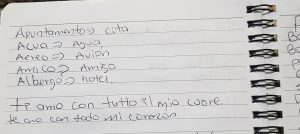 Apuntamento => cita
Acua => Agua
Aereo => Avión
Amico => Amigo
Albergo => hotel.
Ti amo con tutto il mio cuore
te amo con todo mi corazon